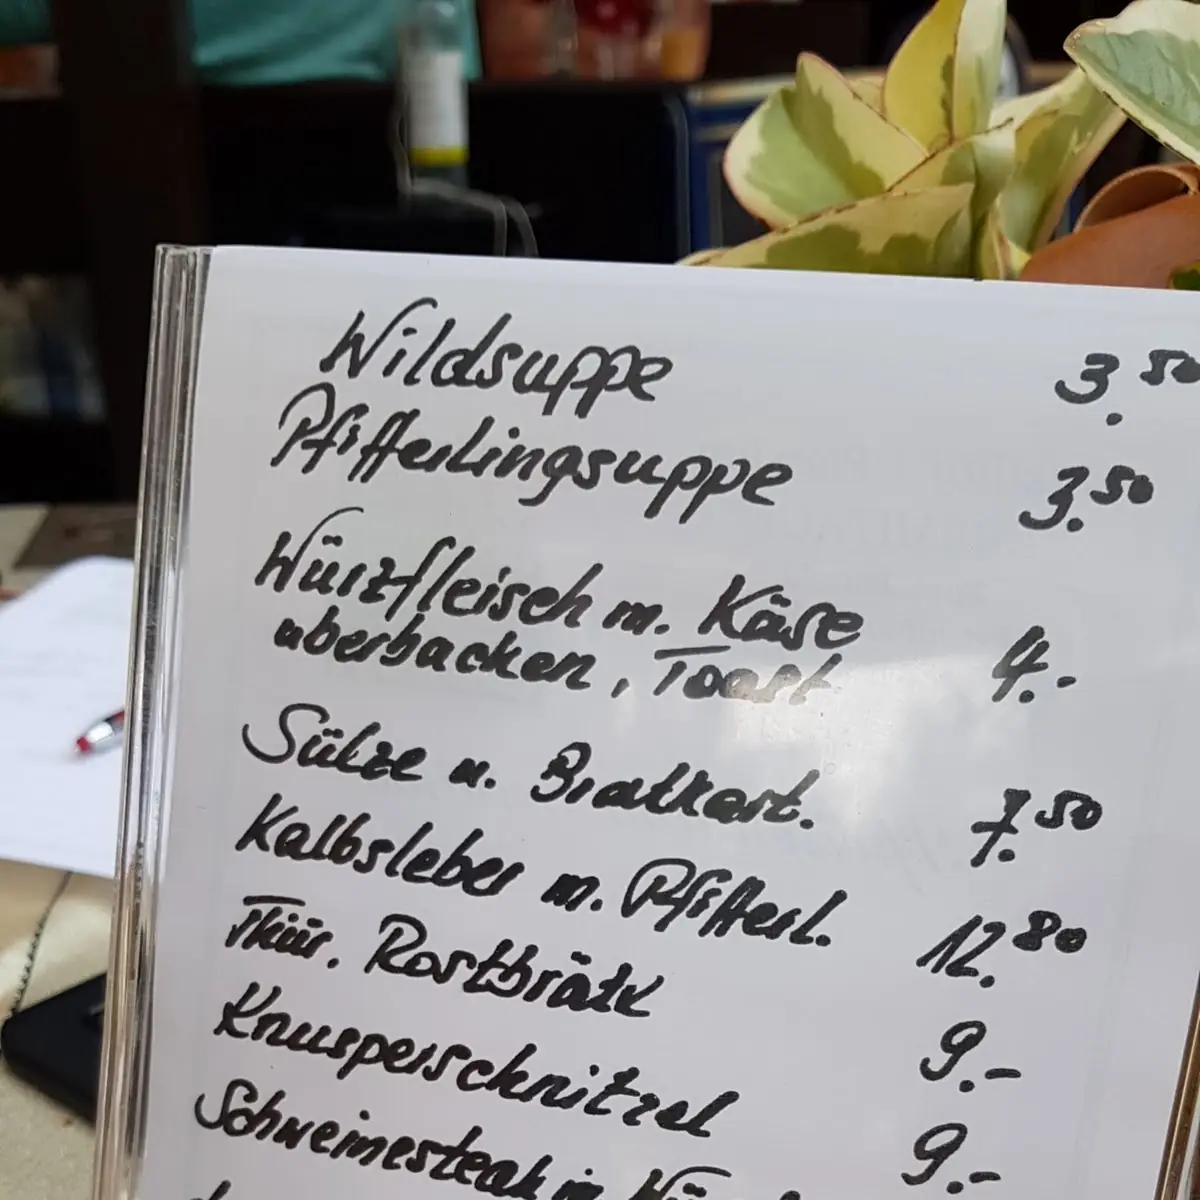 Wildsuppe 3.50
Pfifferlingsuppe 3.50
Würzfleisch m. Käse
überbacken, Toast 4.-
Sülze u. Bratkart. 7.50
Kalbsleber m. Pfifferl. 12.80
Thür. Rostbrätl 9.-
Knusperschnitzel 9.-
Schweinesteak m.